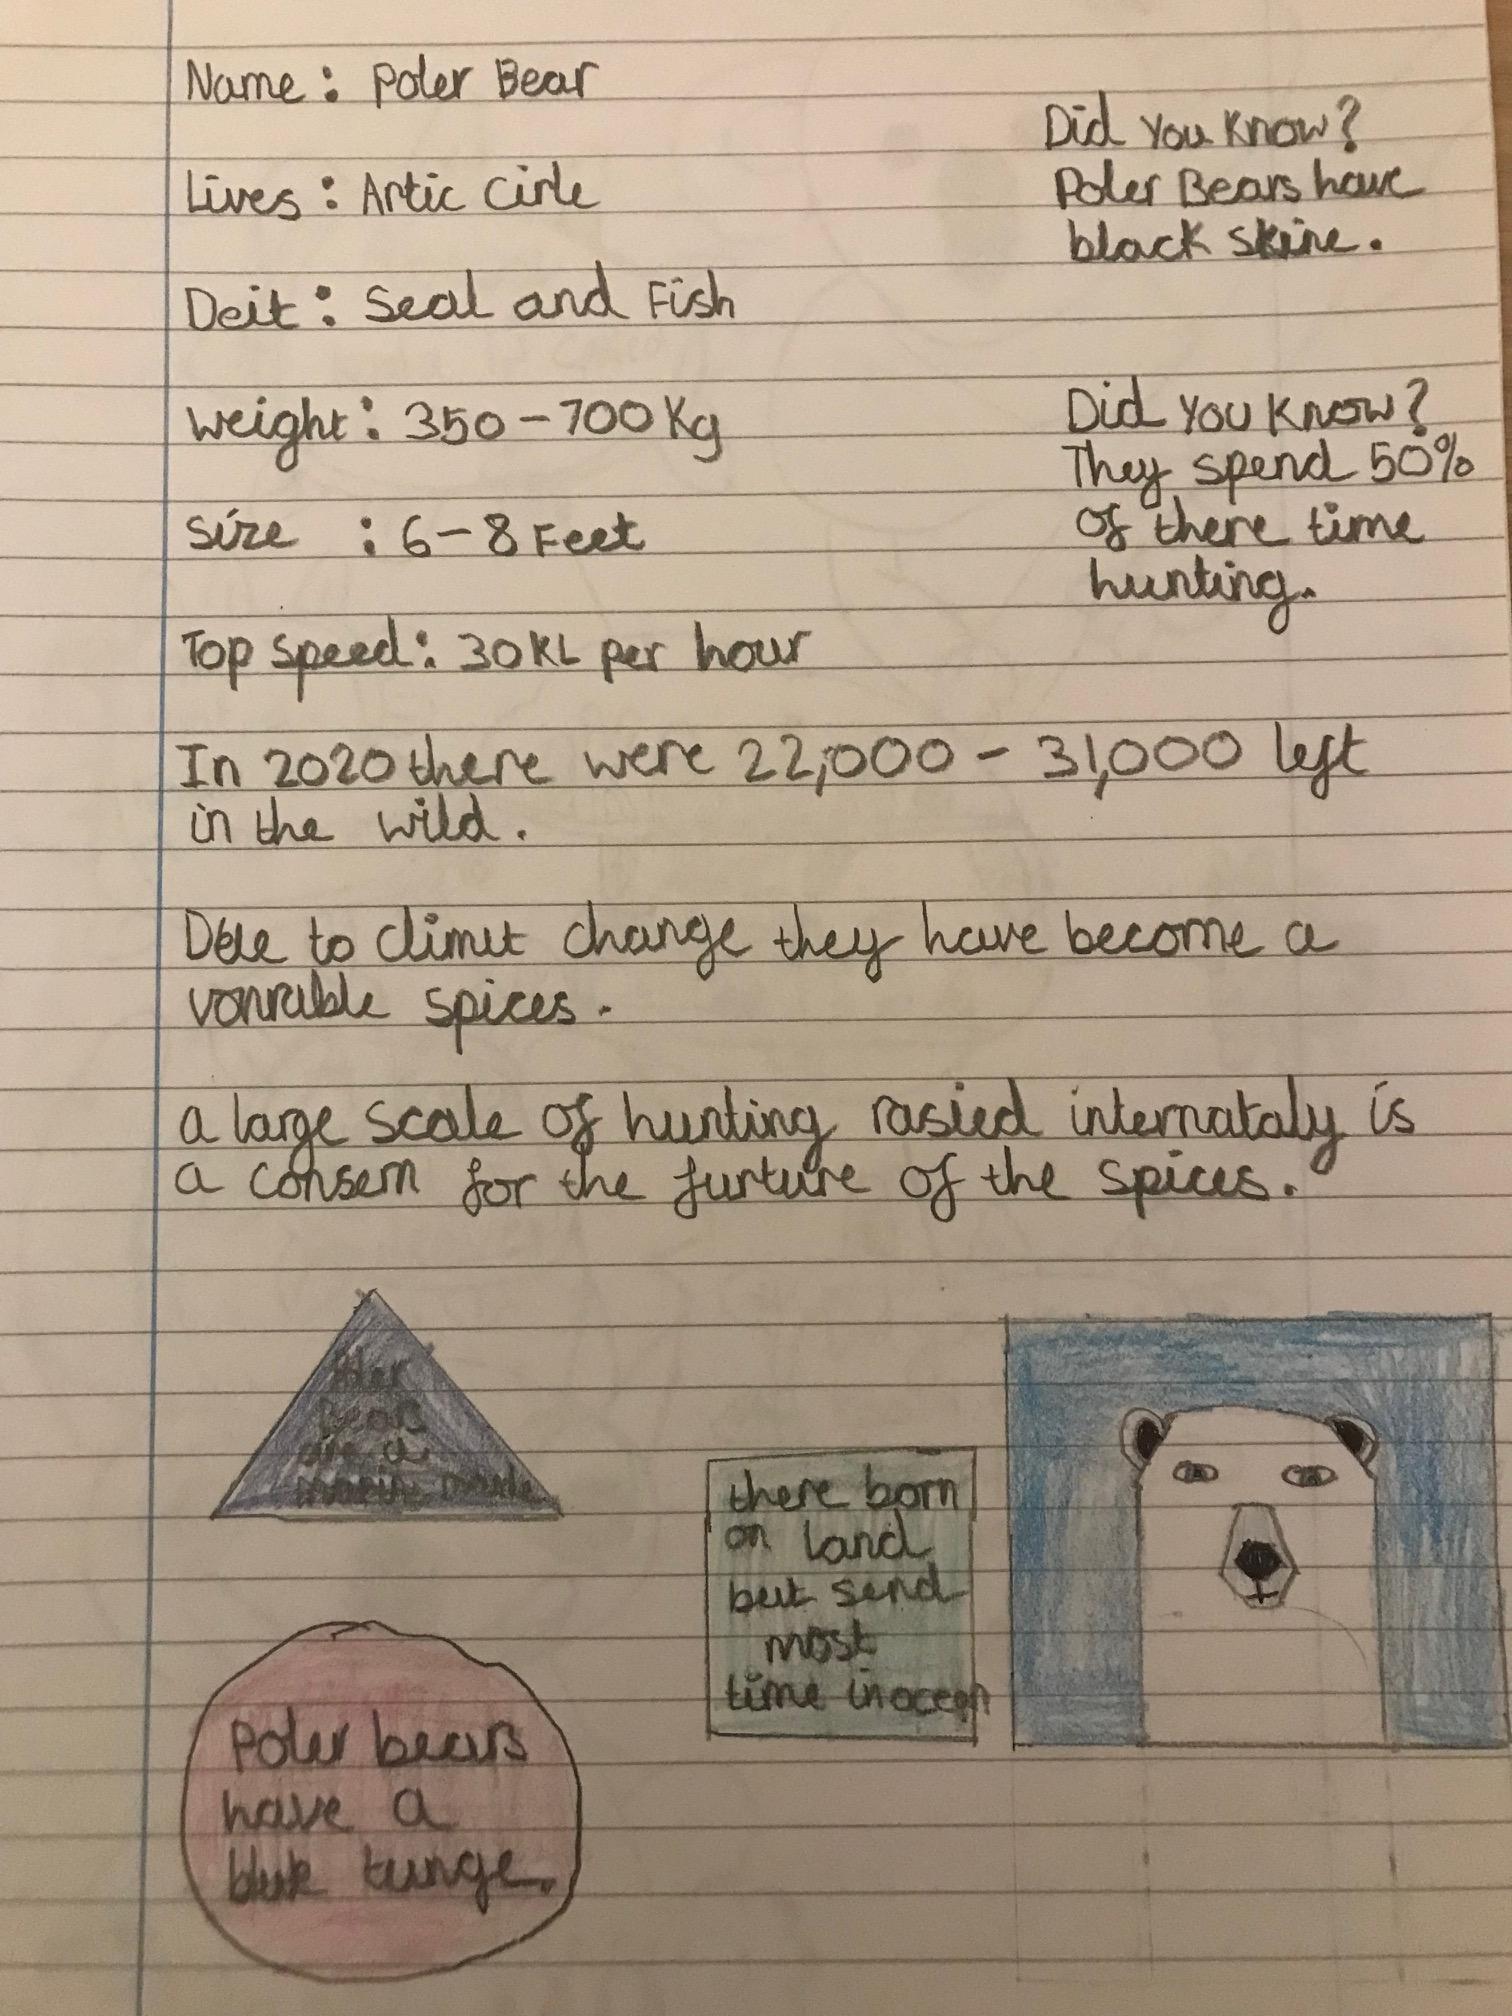 Name: Poler Bear
Lives: Artic Cirle
Deit: Seal and Fish
Weight: 350-700Kg
Size : 6-8 Feet
Top Speed: 30KL per hour
Did You Know?
Poler Bears have
black skine.
Did You Know?
They spend 50%
of there time
hunting.
In 2020 there were 22,000 - 31,000 left
in the wild.
Due to climit change they have become a
vonrable spices.
a large scale of hunting rasied internataly is
a consern for the furture of the spices.
Poler
Bears
are a
there born
on land
but send
most
time in ocean
Poler bears
have a
tunge.